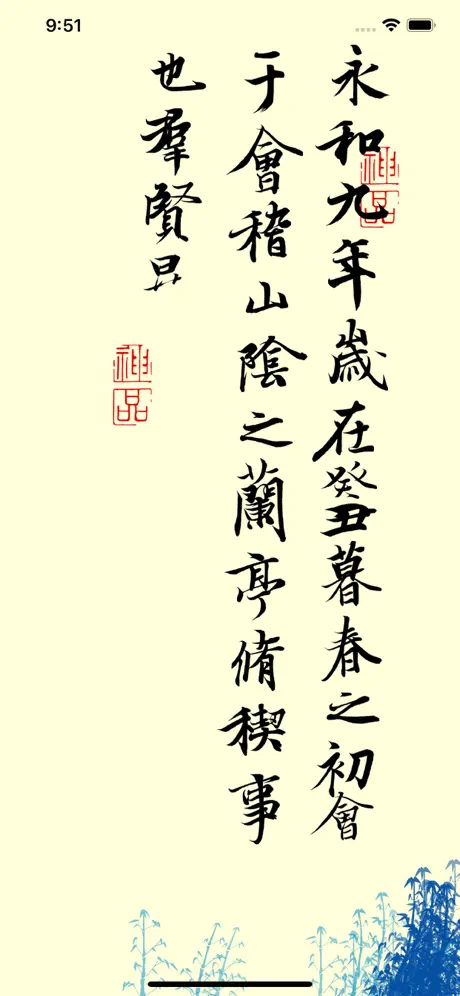 9:51
永和九年歲在癸丑暮春之初會
于會稽山陰之蘭亭脩稧事
也羣賢
神品
神品